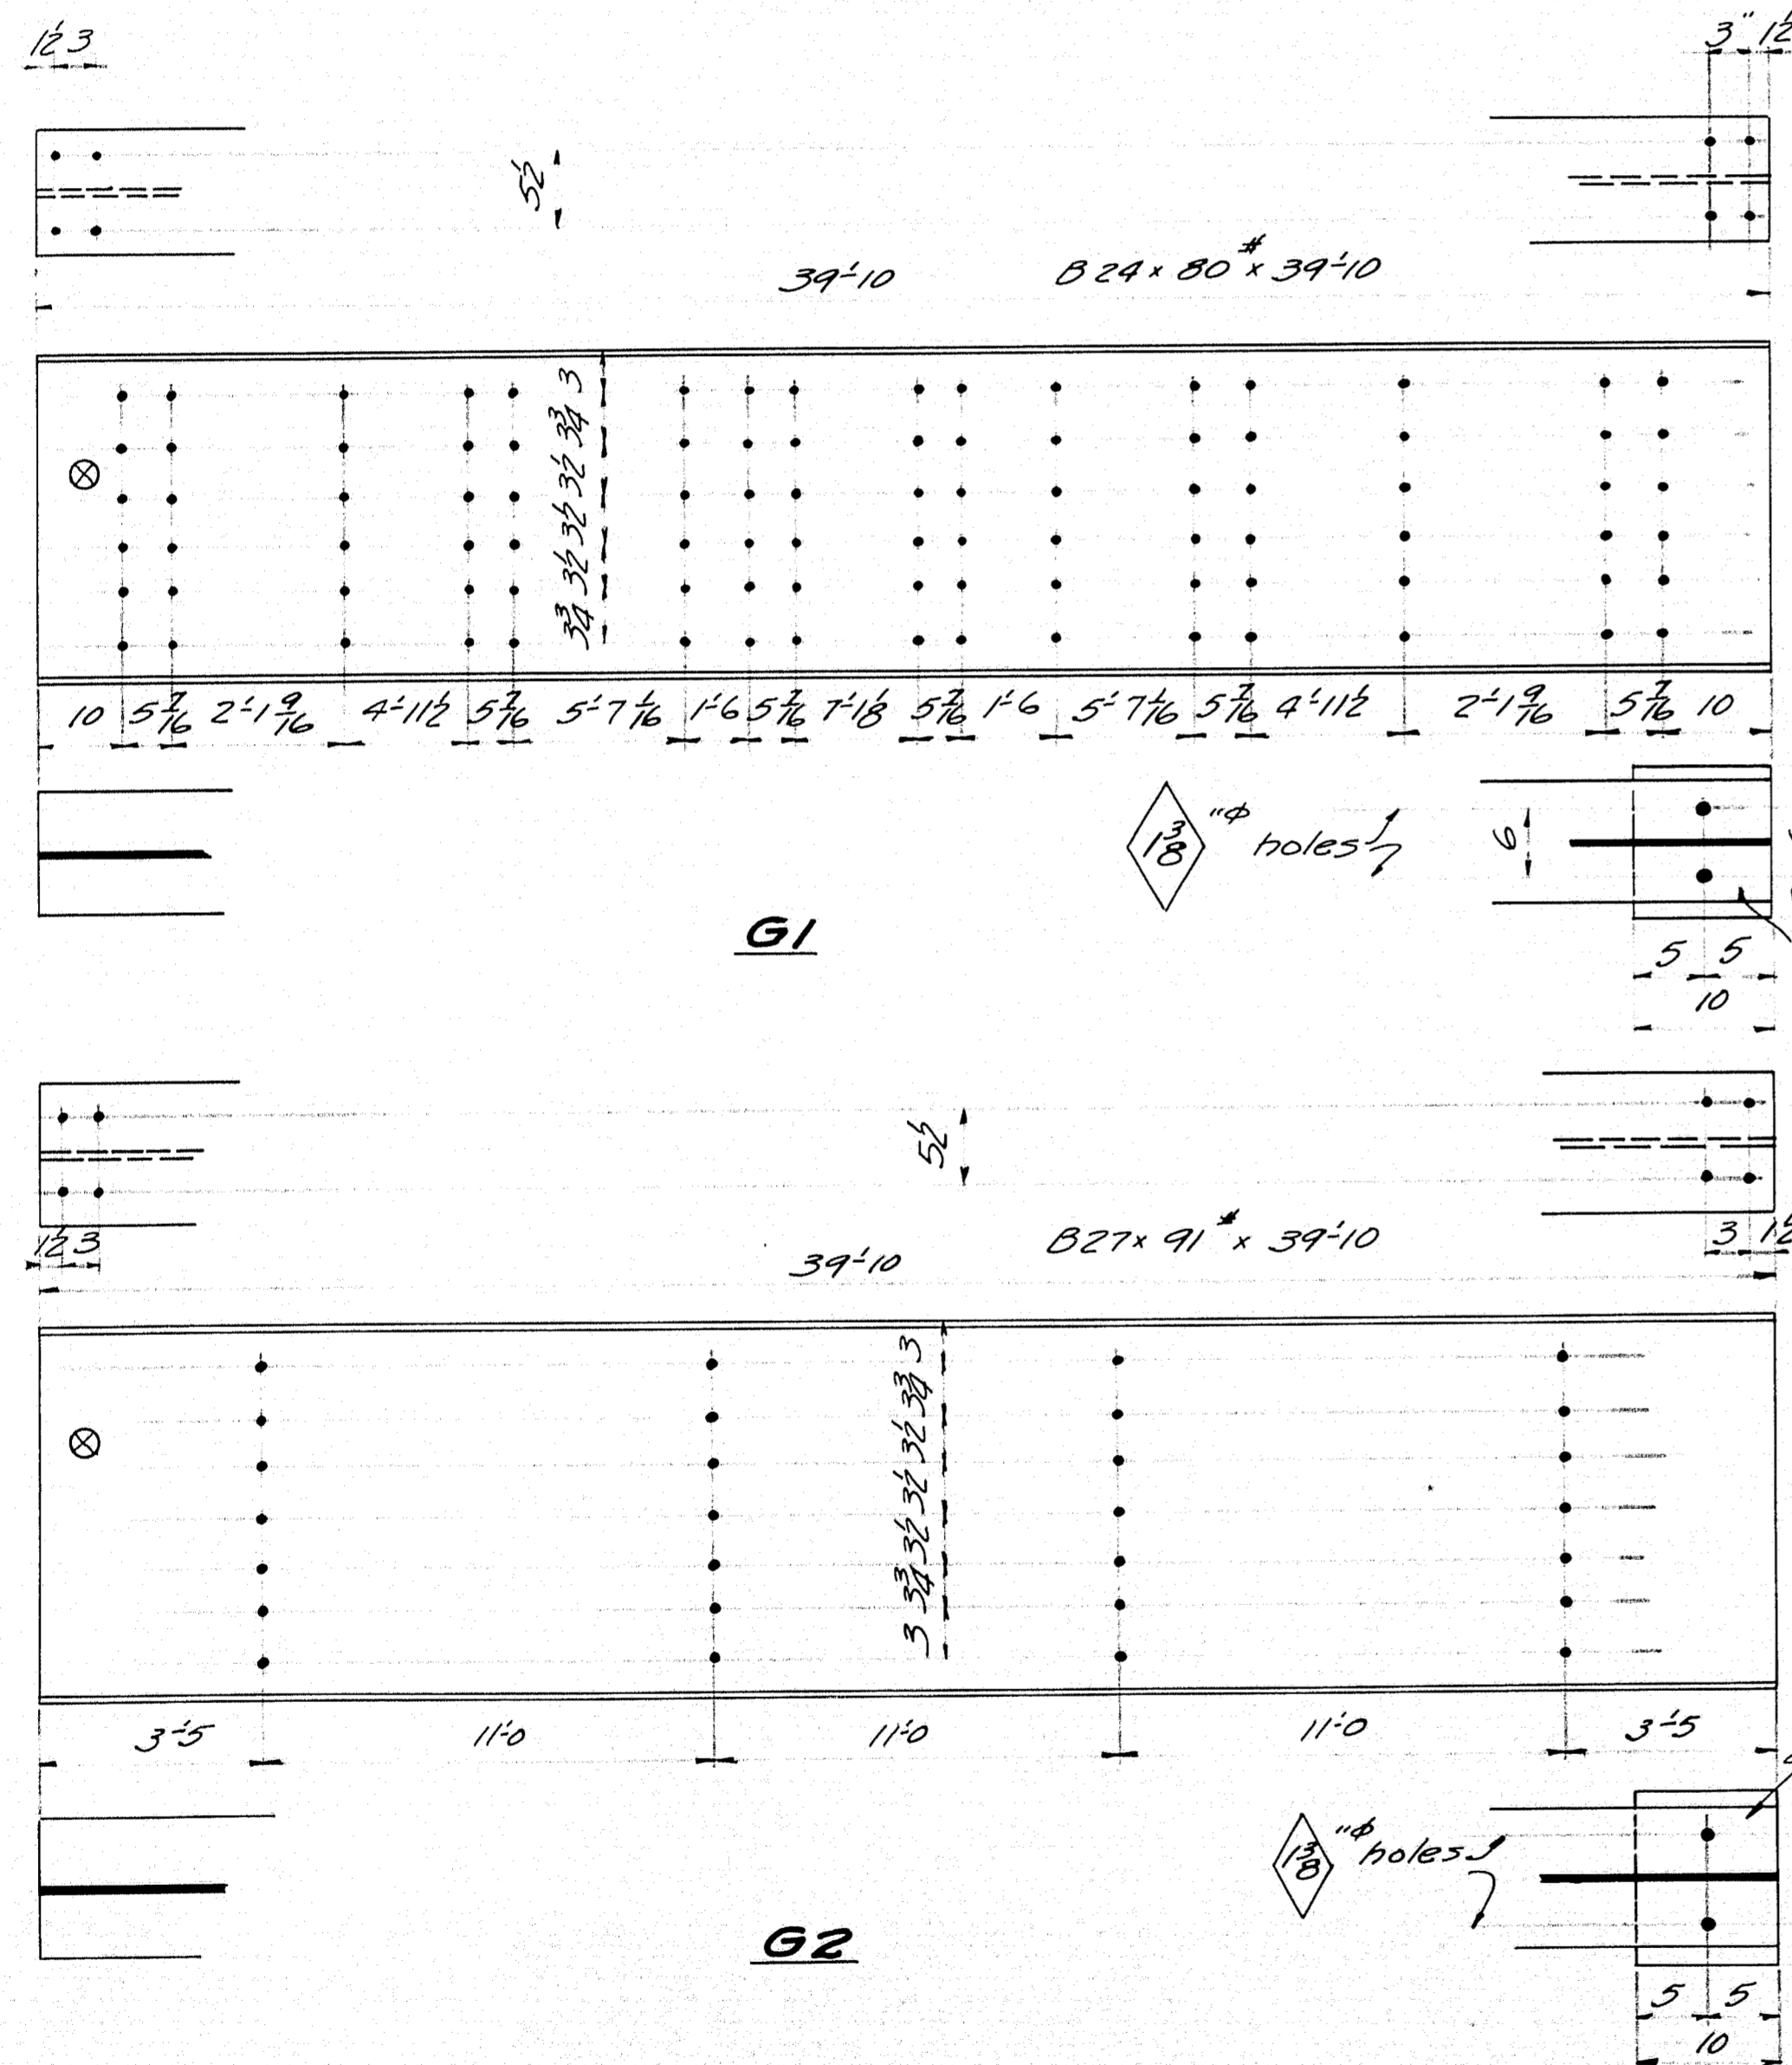 1½ 3
3" 1½
5½
39'-10
B 24 x 80# x 39'-10
3 3¾ 3½ 3½ 3½ 3¾
10 5 7/16 2'-1 9/16 4'-11½ 5 7/16 5'-7 1/16 1'-6 5 7/16 7'-1⅛ 5 7/16 1'-6 5'-7 1/16 5 7/16 4'-11½ 2'-1 9/16 5 7/16 10
1⅜ "φ holes
6
5 5
10
G1
5½
1½ 3
3 1½
39'-10
B27 x 91# x 39'-10
3 3¾ 3½ 3½ 3½ 3¾ 3
3'-5 11'-0 11'-0 11'-0 3'-5
1⅜ "φ holes
G2
5 5
10